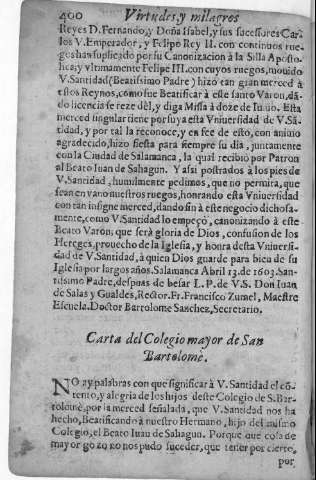 400 Virtudes, y milagros
Reyes D. Fernando, y Doña Isabel, y sus successores Car
los V. Emperador, y Felipo Rey II. con continuos rue-
gos han suplicado por su Canonizacion à la Silla Aposto-
lica; y vltimamente Felipe III. con cuyos ruegos, mouido
V. Santidad (Beatissimo Padre) hizo tan gran merced à
estos Reynos, como fue Beatificar à este santo Varon, dã-
do licencia se reze dèl, y diga Missa à doze de Iunio. Esta
merced singular tiene por suya esta Vniuersidad de V. Sã-
tidad, y por tal la reconoce, y en fee de esto, con animo
agradecido, hizo fiesta para siempre su dia, juntamente
con la Ciudad de Salamanca, la qual recibiò por Patron
al Beato Iuan de Sahagun. Y assi postrados à los pies de
V. Santidad, humilmente pedimos, que no permita, que
sean en vano nuestros ruegos, honrando esta Vniuersidad
con tan insigne merced, dando fin à este negocio dichosa-
mente, como V. Santidad lo empeçò, canonizando à este
Beato Varon, que serà gloria de Dios, confusion de los
Hereges, prouecho de la Iglesia, y honra desta Vniuersi-
dad de V. Santidad, à quien Dios guarde para bien de su
Iglesia por largos años. Salamanca Abril 13. de 1603. San-
tissimo Padre, despues de besar L.P. de V.S. Don Iuan
de Salas y Gualdes, Rector. Fr. Francisco Zumel, Maestre
Escuela. Doctor Bartolome Sanchez, Secretario.
Carta del Colegio mayor de San
Bartolome.
NO ay palabras con que significar à V. Santidad el cõ-
tento, y alegria de los hijos deste Colegio de S. Bar-
tolomè, por la merced señalada, que V. Santidad nos ha
hecho, Beatificando à nuestro Hermano, hijo del mismo
Colegio, el Beato Iuan de Sahagun. Porque que cosa de
mayor gozo no nos pudo suceder, que tener por cierto,
por